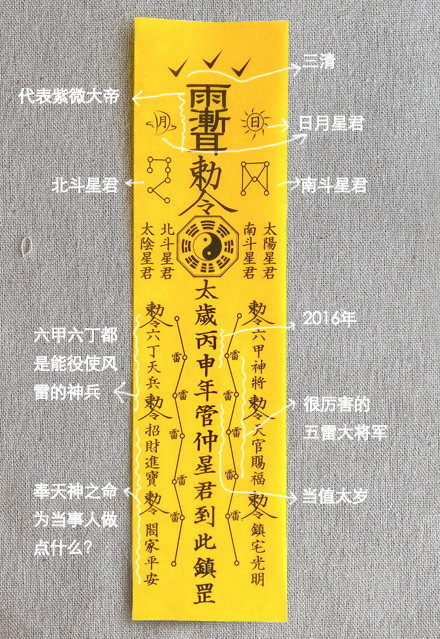 三清
代表紫微大帝
雨
漸
耳
月
日
日月星君
敕
令
北斗星君
南斗星君
太陰星君
北斗星君
南斗星君
太陽星君
太歲丙申年管仲星君到此鎮罡
敕令六丁天兵
敕令招財進寶
敕令閤家平安
雷
雷
雷
雷
雷
雷
雷
雷
雷
雷
敕令六甲神將
敕令天官賜福
敕令鎮宅光明
2016年
六甲六丁都
是能役使风
雷的神兵
很厉害的
五雷大将军
当值太岁
奉天神之命
为当事人做
点什么？